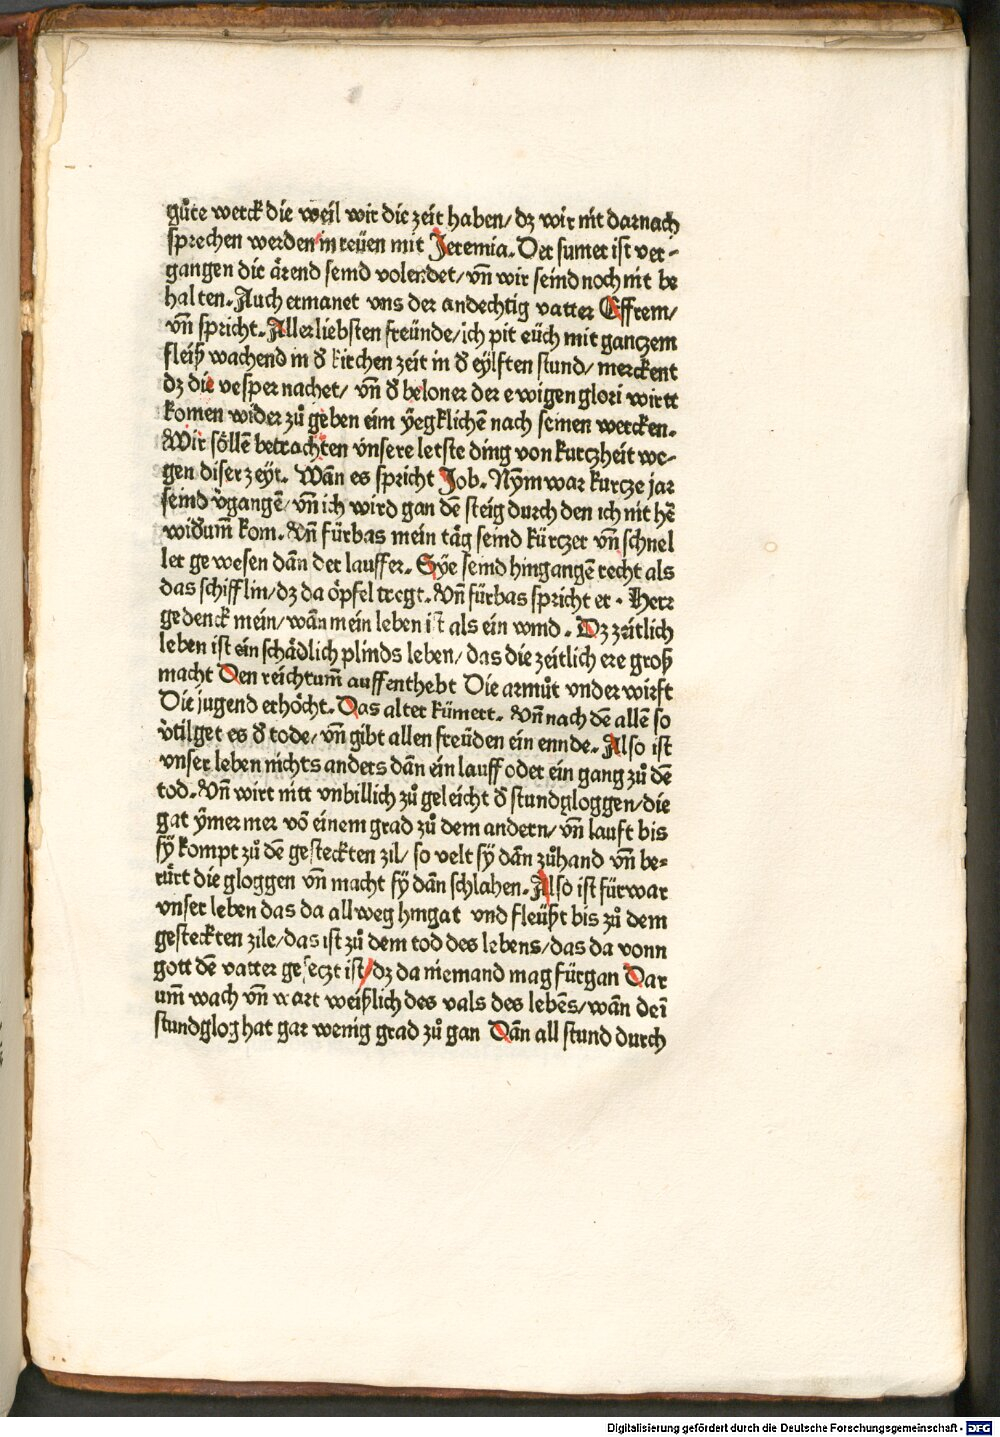 gůte werck die weil wir die zeit haben/ dz wir nit darnach
sprechen werden in reüen mit Jeremia. Der sumer ist ver-
gangen die ärend seind volendet/ vn̄ wir seind noch nit be
halten. Auch ermanet vns der andechtig vatter Effrem/
vn̄ spricht. Aller liebsten freünde/ ich pit eüch mit ganczem
fleiß wachend in d̕ kirchen zeit in d̕ eylften stund/ merckent
dz die vesper nachet/ vn̄ d̕ beloner der ewigen glori wirtt
komen wider zů geben eim yegklichē nach seinen wercken.
Wir söllē betrachten vnsere letste ding von kurczheit we-
gen diser zeyt. Wān es spricht Job. Nym war kurcze jar
seind v̕gangē/ vn̄ ich wird gan dē steig durch den ich nit hē
wid̕um̄ kom. Vn̄ fürbas mein täg seind kürczer vn̄ schnel
ler gewesen dān der lauffer. Sye seind hingangē recht als
das schifflin/ dz da öpfel tregt. Vn̄ fürbas spricht er. Herr
gedenck mein/ wān mein leben ist als ein wind. Dz zeitlich
leben ist ein schädlich plinds leben/ das die zeitlich ere groß
macht Den reichtum̄ auffenthebt Die armůt vnder wirft
Die jugend erhöcht. Das alter kümert. Vn̄ nach dē allē so
v̕tilget es d̕ tode/ vn̄ gibt allen freüden ein ennde. Also ist
vnser leben nichts anders dān ein lauff oder ein gang zů dē
tod. Vn̄ wirt nitt vnbillich zů geleicht d̕ stundgloggen/ die
gat ymer mer vō einem grad zů dem andern/ vn̄ lauft bis
sy kompt zů dē gesteckten zil/ so velt sy dān zůhand vn̄ be-
rürt die gloggen vn̄ macht sy dān schlahen. Also ist fürwar
vnser leben das da allweg hingat vnd fleüßt bis zů dem
gesteckten zile/ das ist zů dem tod des lebens/ das da vonn
gott dē vatter geseczt ist/ dz da niemand mag fürgan Dar
um̄ wach vn̄ wart weißlich des vals des lebēs/ wān dei
stundglog hat gar wenig grad zů gan Dān all stund durch
Digitalisierung gefördert durch die Deutsche Forschungsgemeinschaft - DFG